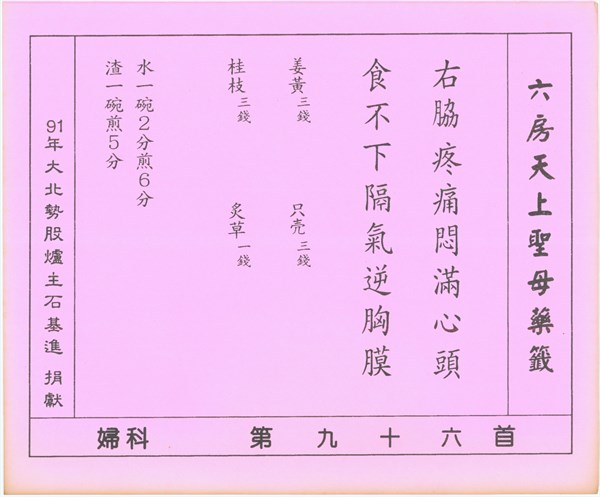 六房天上聖母藥籤
右脇疼痛悶滿心頭
食不下隔氣逆胸膜
姜黃三錢 只壳三錢
桂枝三錢 炙草一錢
水一碗2分煎6分
渣一碗煎5分
91年大北勢股爐主石基進 捐獻
婦科 第九十六首